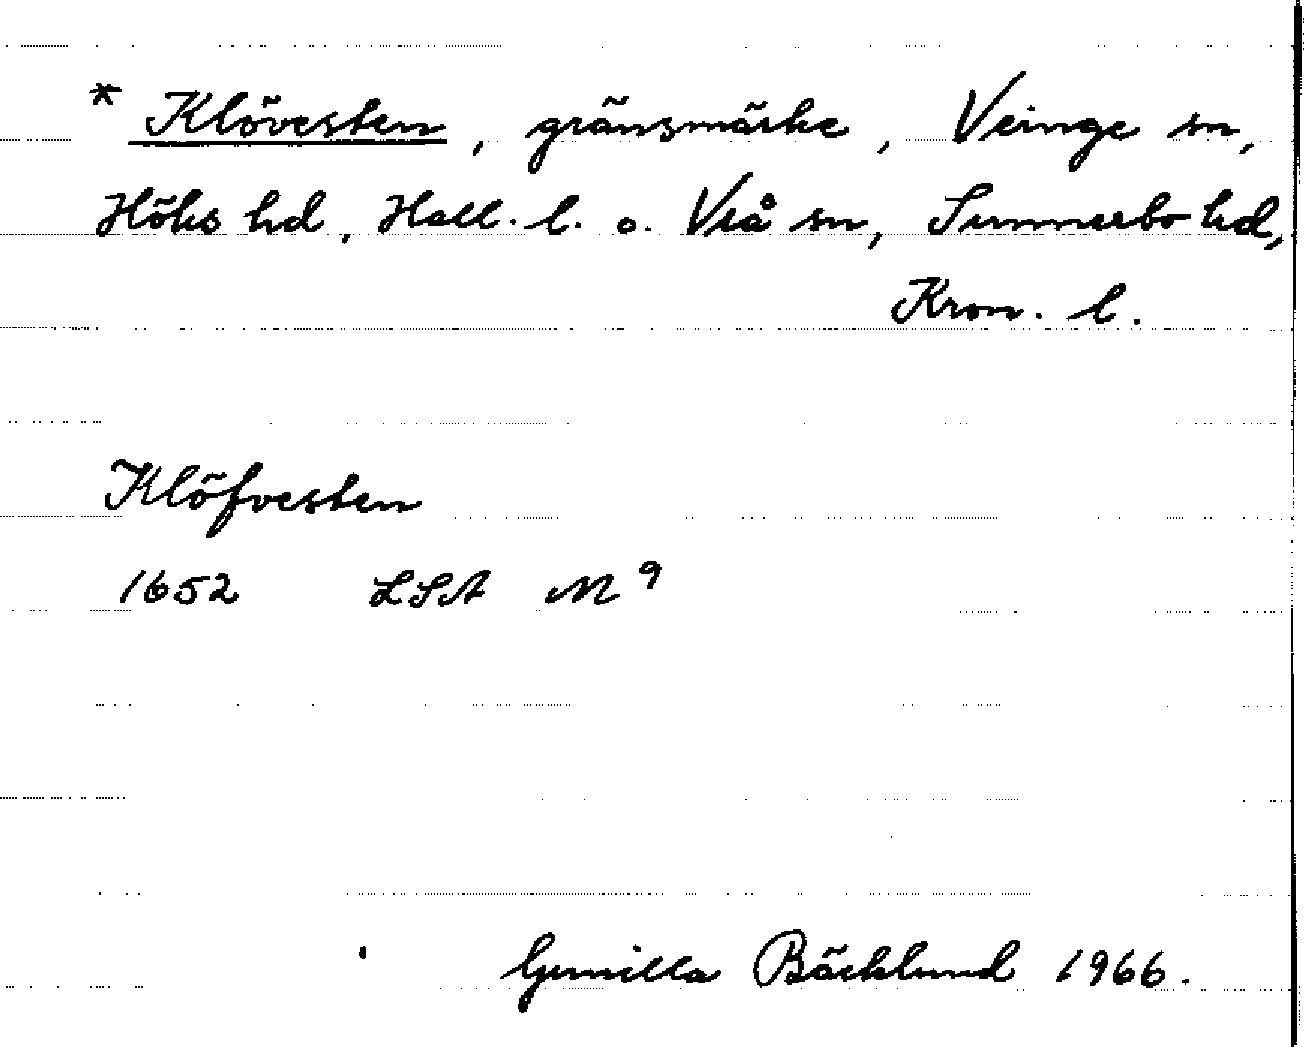 * Klövesten, gränsmärke, Veinge sn,
Höks hd, Hall. l. o. Vrå sn, Sunnerbo hd,
Kron. l.
Klöfvesten
1652 LSA M 9
Gunilla Bäcklund 1966.